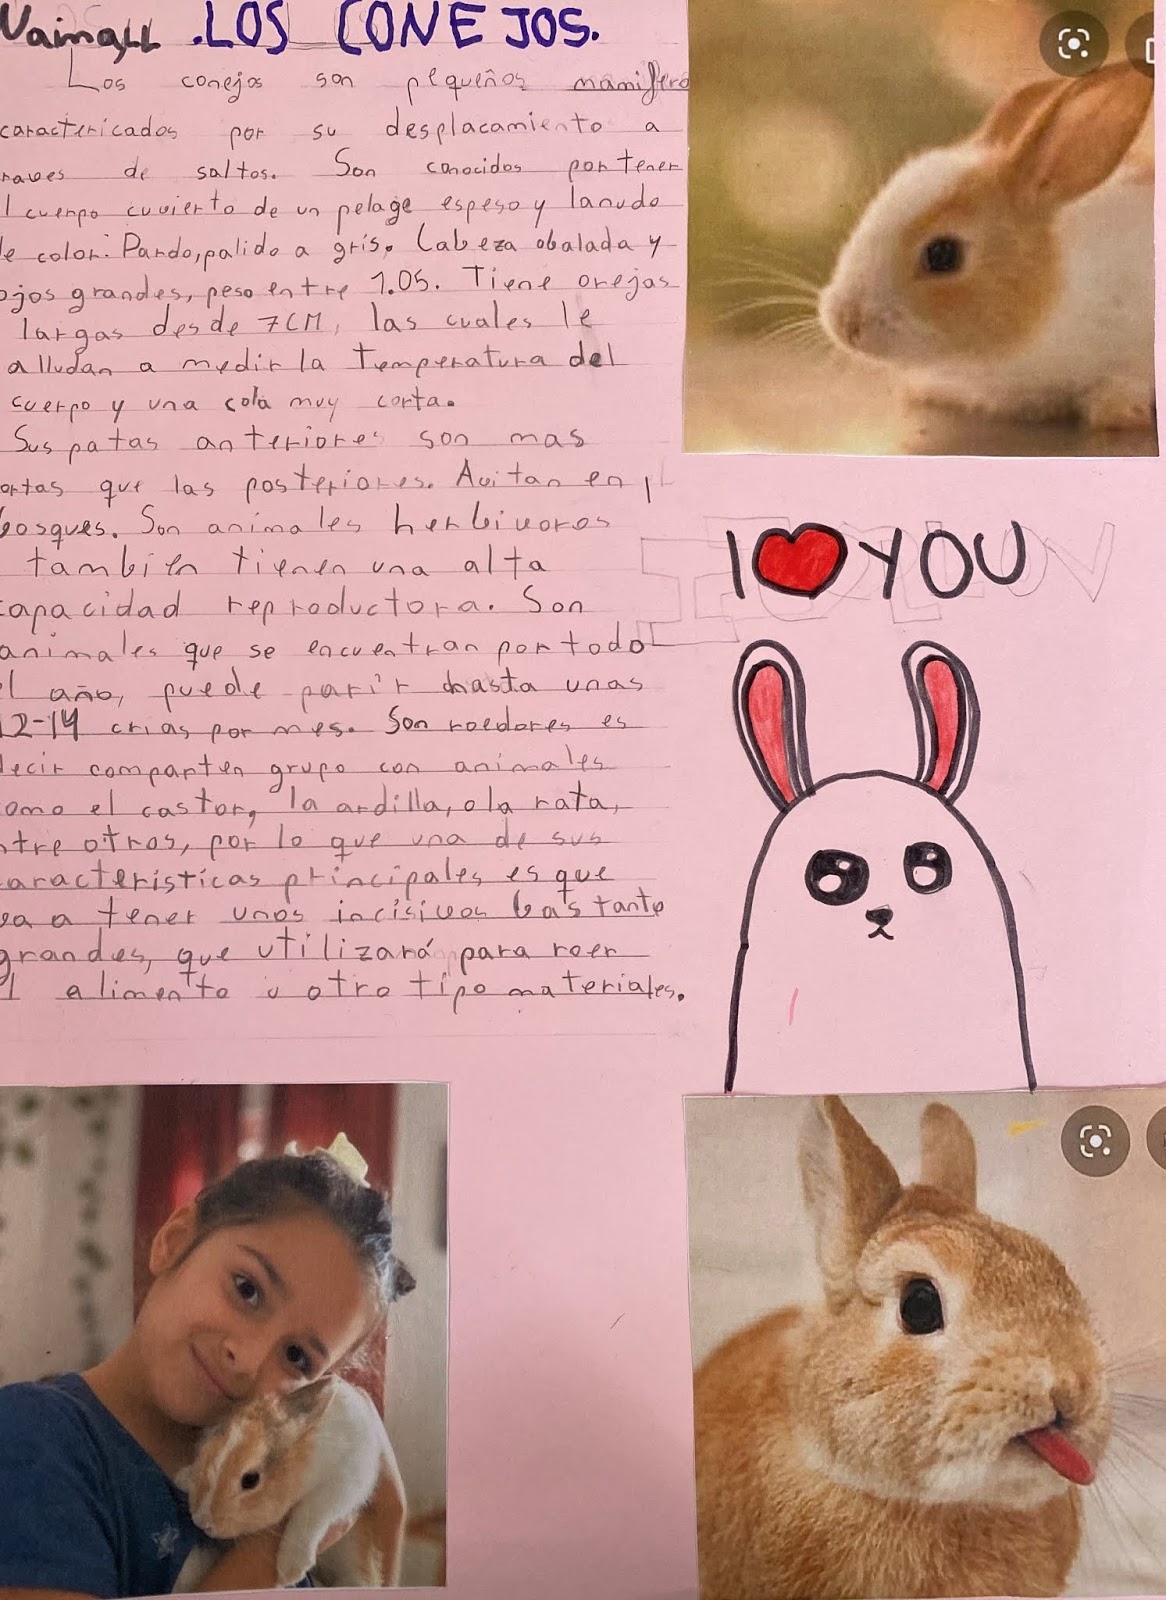 LOS CONEJOS.
Los conejos son pequeños mamífero
caractericados por su desplacamiento a
raves de saltos. Son conocidos por tener
l cuerpo cuvierto de un pelage espeso y lanudo
de color: Pardo, palido a gris. Cabeza obalada y
ojos grandes, peso entre 1.05. Tiene orejas
largas desde 7CM, las cuales le
alludan a medir la temperatura del
cuerpo y una cola muy corta.
Sus patas anteriores son mas
ortas que las posteriores. Avitan en
bosques. Son animales herbivoros
también tienen una alta
capacidad reproductora. Son
animales que se encuentran por todo
el año, puede parir hasta unas
12-14 crias por mes. Son roedores es
decir comparten grupo con animales
como el castor, la ardilla, o la rata,
ntre otros, por lo que una de sus
características principales es que
va a tener unos incisivos bastante
grandes, que utilizará para roer
l alimento u otro tipo materiales.
I ❤ YOU